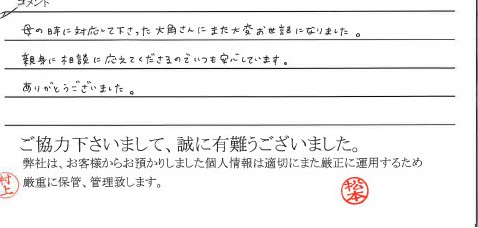 コメント
母の時に対応して下さった大角さんにまた大変お世話になりました。
親身に相談に応えてくださるのでいつも安心しています。
ありがとうございました。
ご協力下さいまして、誠に有難うございました。
弊社は、お客様からお預かりしました個人情報は適切にまた厳正に運用するため
厳重に保管、管理致します。
村上
松本